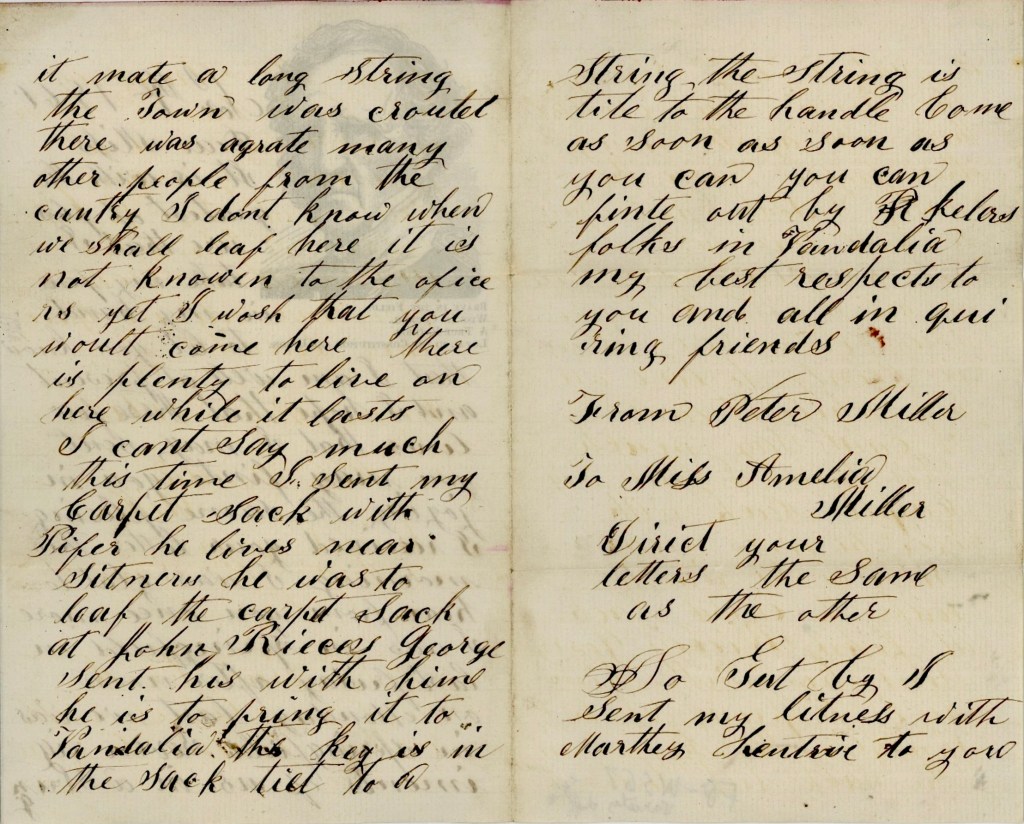 it mate a long string
the Town was croutet
there was agrate many
other people from the
cuntry I dont know when
we shall leaf here it is
not knowen to the ofice
rs yet I wosh that you
woult come here there
is plenty to live on
here while it lasts
I cant Say much
this time I sent my
Carpet Sack with
Pifer he lives near
Sitners he was to
loaf the carpet Sack
at John Rieces George
sent his with hime
he is to pring it to
Vandalia the key is in
the sack tiet to a
String the string is
tite to the handle Come
as soon as soon as
you can you can
finte out by kelers
folks in Vandalia
my best respects to
you and all in qui
ring friends
From Peter Miller
To Miss Amelia
Miller
Dirict your
letters the same
as the other
So Gut by I
Sent my litness with
Marthey to you